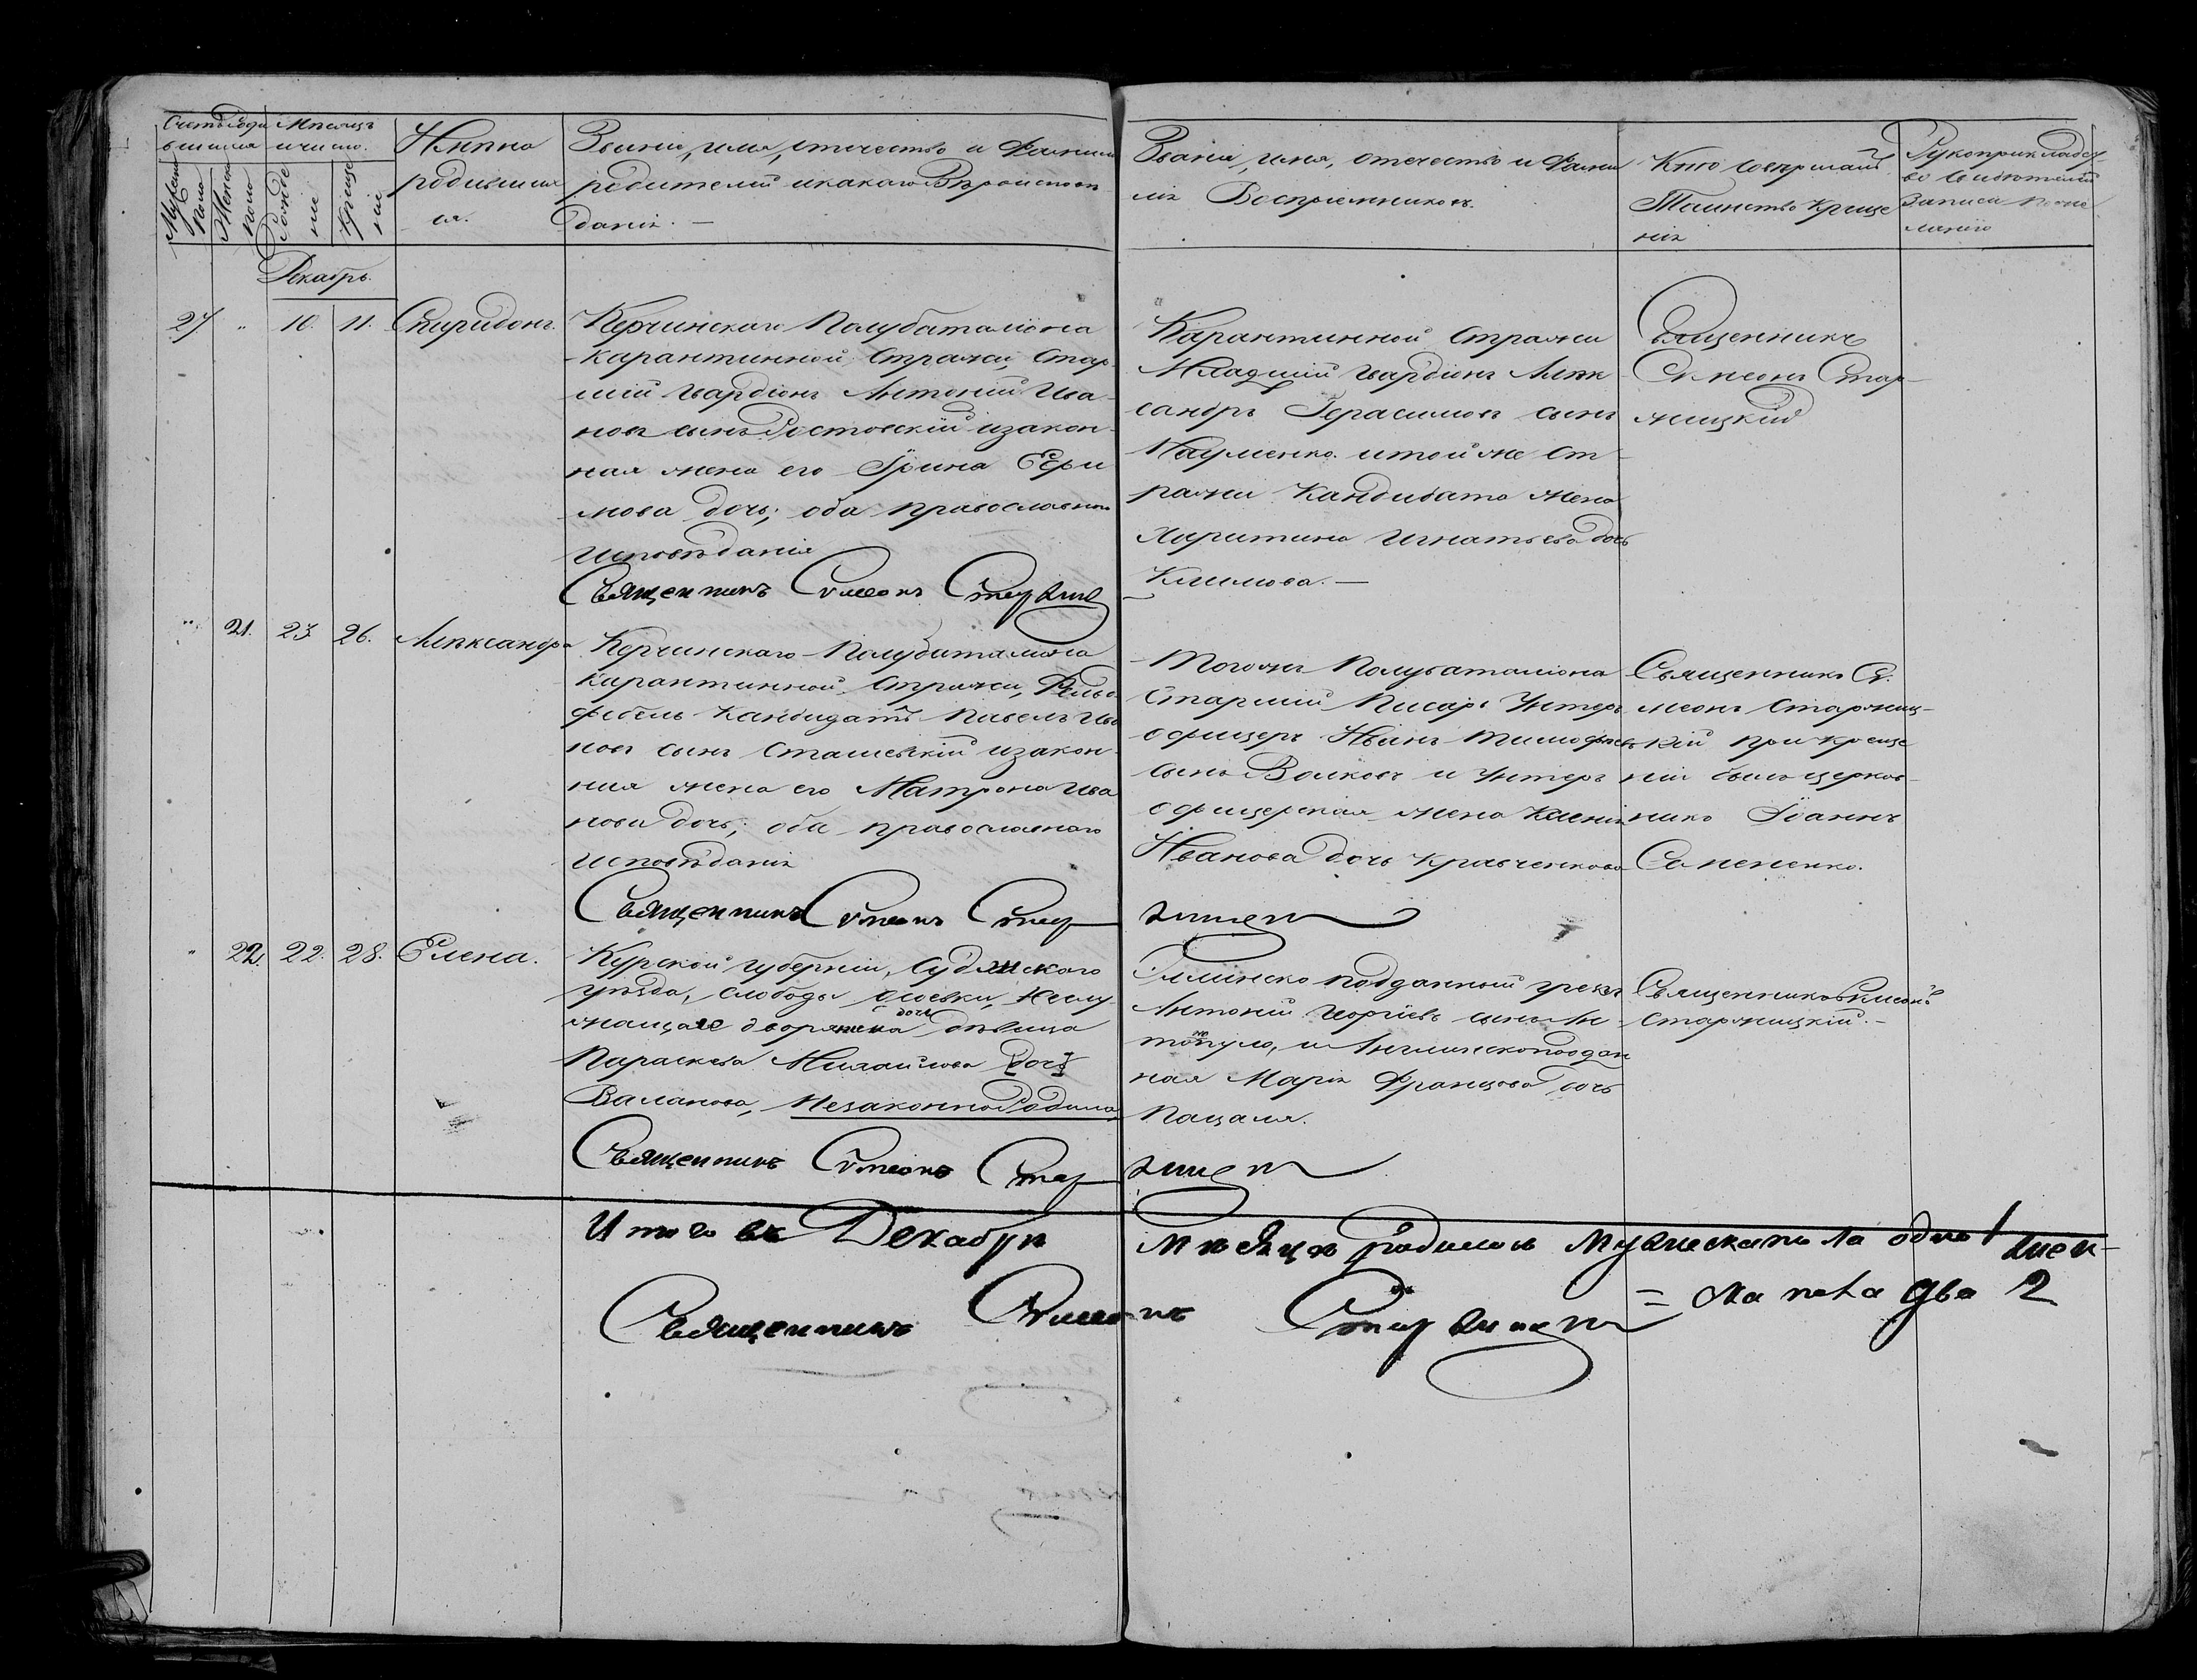 Счетъ роди
вшихся
Мѣсяцъ
и число.
Мужеска
пола
Женска
пола
Рожде
ніе
Креще
ніе
Имена
родивших
ся.
Званіе, имя, отчество и Фамилія
родителей и какого Вѣроисповѣ
данія. —
Званіе, имя, отчество и Фами
лія Воспріемниковъ.
Кто совершалъ
Таинство Креще
нія
Рукоприкладст
во свидѣтелей
записи по же
ланію
Декабрь.
27 " 10. 11. Спиридонъ.
Керчинскаго Полубаталіона
карантинной Стражи, Стар
шій гвардіонъ Антоній Ива
новъ сынъ Ростовскій и закон
ная жена его Ірина Ефи
мова дочь; оба православнаго
исповѣданія
Священникъ Симеонъ
Карантинной Стражи
Младшій гвардіонъ Алек
сандръ Герасимовъ сынъ
Науменко. и той же Ст
ражи Кандидата жена
Харитина Игнатьева дочь
Климова. —
Священникъ
Симеонъ Стар
жицкій
" 21. 23 26. Александра
Керчинскаго Полубаталіона
карантинной Стражи, Фельд
фебель Кандидатъ Павелъ Ива
новъ сынъ Сташевскій и закон
ная жена его Матрона Ива
нова дочь; оба православнаго
исповѣданія
Священникъ Симеонъ Стар
жицкій
Тогожъ Полубаталіона
Старшій Писарь Унтеръ
офицеръ Иванъ Тимофѣевъ
сынъ Волковъ и Унтеръ
офицерская жена Ксенія
Иванова дочь Кравченкова
Священникъ Си
меонъ Старжиц
кій при креще
ніи былъ церков
никъ Іоаннъ
Семененко.
" 22. 22. 28. Елена.
Курской губерніи, Суджскаго
уѣзда, слободы неслу
жащаго дворянина дочь дѣвица
Параскева Михайлова дочь
Валанова, Незаконно Родила
Священникъ Симеонъ Стар
жицкій
Еллинско подданный грекъ
Антоній Георгіевъ сынъ Ан
топуло, и Англинскоподдан
ная Марія Францова дочь
Пацаля.
Священникъ Симеонъ
Старжицкій. —
Итого въ Декабрѣ мѣсяцѣ родилось Мужеска пола одно 1 жен-
= ска пола два 2
Священникъ Симеонъ Старжицкій